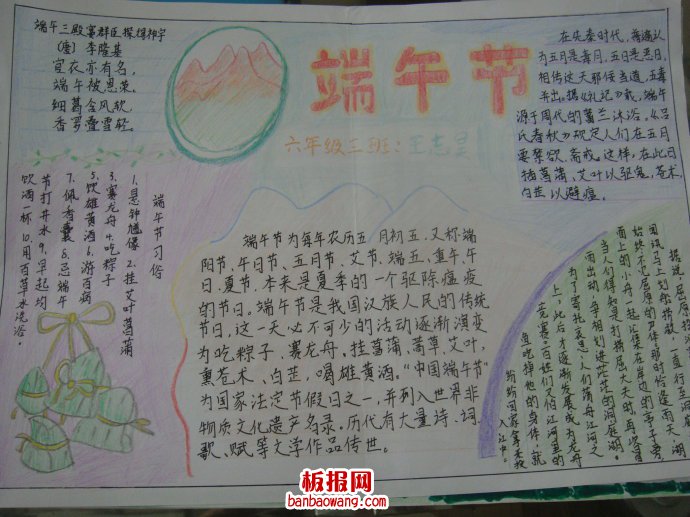 端午三殿宴群臣探得神字
(唐) 李隆基
宜衣亦有名,
端午被恩荣。
细葛含风软,
香罗叠雪轻。
端午节
六年级三班:
在先秦时代,普遍认
为五月是毒月,五日是恶日,
相传这天邪佞当道,五毒
并出。据《礼记》载,端午
源于周代的蓄兰沐浴。《吕
氏春秋》规定人们在五月
要禁欲、斋戒。这样,在此日
插菖蒲、艾叶以驱鬼,苍术、
白芷以避瘟。
端午节习俗
1.悬钟馗像 2.挂艾叶菖蒲
3.赛龙舟 4.吃粽子
5.饮雄黄酒 6.游百病
7.佩香囊 8.忌端午
节打井水 9.早起均
饮酒一杯 10.用百草水洗浴。
端午节为每年农历五月初五,又称端
阳节、午日节、五月节、艾节、端五、重午、午
日、夏节。本来是夏季的一个驱除瘟疫
的节日。端午节是我国汉族人民的传统
节日,这一天必不可少的活动逐渐演变
为吃粽子、赛龙舟。挂菖蒲、蒿草、艾叶,
熏苍术、白芷,喝雄黄酒。“中国端午节”
为国家法定节假日之一,并列入世界非
物质文化遗产名录。历代有大量诗、词、
歌、赋等文学作品传世。
面上的小舟一起汇集在岸边的亭子旁。
当人们得知是打捞屈大夫时,再次冒
雨出动,争相划进茫茫的洞庭湖。
为了寄托哀思,人们荡舟江河之
上,此后才逐渐发展成为龙舟
竞赛。百姓们又怕江河里的
鱼吃掉他的身体,就
纷纷回家拿来米
入江中。
板报网
banbaowang.com